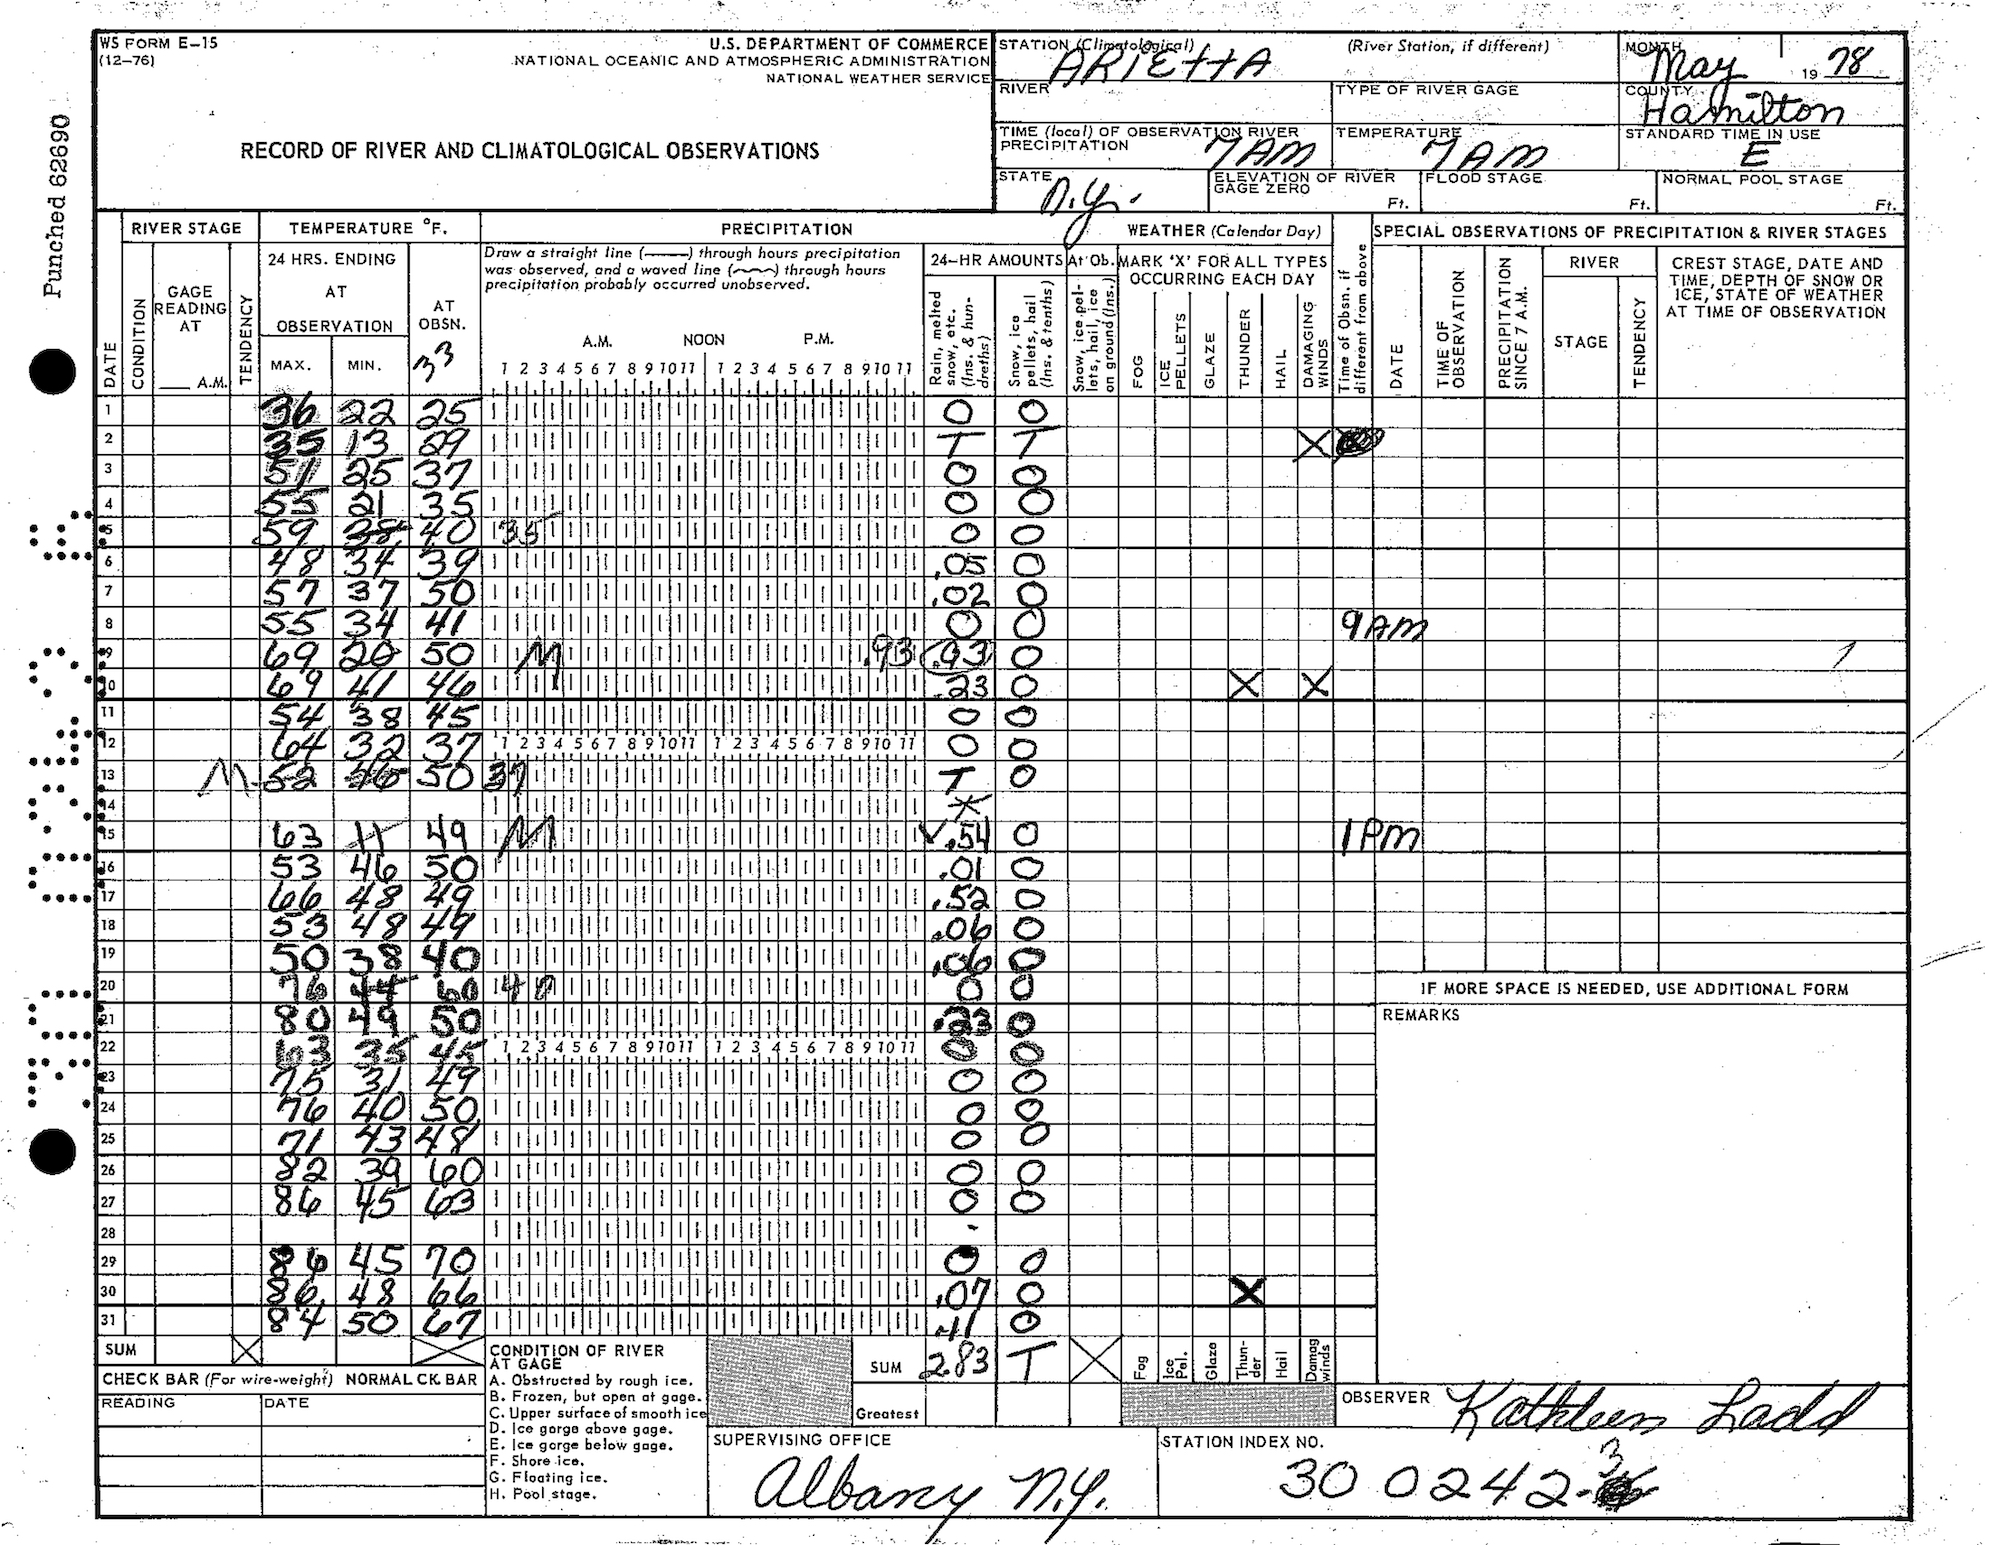 WS FORM E-15
(12-76)
U.S. DEPARTMENT OF COMMERCE
NATIONAL OCEANIC AND ATMOSPHERIC ADMINISTRATION
NATIONAL WEATHER SERVICE
RECORD OF RIVER AND CLIMATOLOGICAL OBSERVATIONS
Punched 62690
STATION (Climatological) (River Station, if different)
ARIEttA
MONTH
May 19 78
RIVER
TYPE OF RIVER GAGE
COUNTY
Hamilton
TIME (local) OF OBSERVATION RIVER
PRECIPITATION
7AM
TEMPERATURE
7AM
STANDARD TIME IN USE
E
STATE
N.Y.
ELEVATION OF RIVER
GAGE ZERO
Ft.
FLOOD STAGE
Ft.
NORMAL POOL STAGE
Ft.
RIVER STAGE
TEMPERATURE °F.
PRECIPITATION
WEATHER (Calendar Day)
SPECIAL OBSERVATIONS OF PRECIPITATION & RIVER STAGES
DATE
CONDITION
GAGE
READING
AT
A.M.
TENDENCY
24 HRS. ENDING
AT
OBSERVATION
MAX. MIN.
AT
OBSN.
33
Draw a straight line (——) through hours precipitation
was observed, and a waved line (~~~) through hours
precipitation probably occurred unobserved.
A.M. NOON P.M.
1 2 3 4 5 6 7 8 9 10 11 1 2 3 4 5 6 7 8 9 10 11
24-HR AMOUNTS
At Ob.
Rain, melted
snow, etc.
(Ins. & hun-
dreths)
Snow, ice
pellets, hail
(Ins. & tenths)
Snow, ice pel-
lets, hail, ice
on ground (Ins.)
MARK 'X' FOR ALL TYPES
OCCURRING EACH DAY
FOG
ICE
PELLETS
GLAZE
THUNDER
HAIL
DAMAGING
WINDS
Time of Obsn. if
different from above
DATE
TIME OF
OBSERVATION
PRECIPITATION
SINCE 7 A.M.
RIVER
STAGE
TENDENCY
CREST STAGE, DATE AND
TIME, DEPTH OF SNOW OR
ICE, STATE OF WEATHER
AT TIME OF OBSERVATION
1 36 22 25 0 0
2 35 13 29 T T X
3 51 25 37 0 0
4 55 21 35 0 0
5 59 38 40 35 0 0
6 48 34 39 .05 0
7 57 37 50 .02 0
8 55 34 41 0 0 9AM
9 69 20 50 M .93 .93 0
10 69 41 46 .23 0 X X
11 54 38 45 0 0
12 64 32 37 1 2 3 4 5 6 7 8 9 10 11 1 2 3 4 5 6 7 8 9 10 11 0 0
13 M 52 50 37 T 0
14 *
15 63 11 49 M ✓ .54 0 1PM
16 53 46 50 .01 0
17 66 48 49 .52 0
18 53 48 49 .06 0
19 50 38 40 .06 0
20 76 44 60 40 0 0
21 80 49 50 .23 0
22 63 35 45 1 2 3 4 5 6 7 8 9 10 11 1 2 3 4 5 6 7 8 9 10 11 0 0
23 75 31 49 0 0
24 76 40 50 0 0
25 71 43 48 0 0
26 82 39 60 0 0
27 86 45 63 0 0
28 -
29 86 45 70 0 0
30 86 48 66 .07 0 X
31 84 50 67 .11 0
IF MORE SPACE IS NEEDED, USE ADDITIONAL FORM
REMARKS
SUM
CHECK BAR (For wire-weight) NORMAL CK. BAR
READING DATE
CONDITION OF RIVER
AT GAGE
A. Obstructed by rough ice.
B. Frozen, but open at gage.
C. Upper surface of smooth ice
D. Ice gorge above gage.
E. Ice gorge below gage.
F. Shore ice.
G. Floating ice.
H. Pool stage.
SUM 2.83 T
Greatest
Fog
Ice
Pel.
Glaze
Thun-
der
Hail
Damag
winds
OBSERVER Kathleen Ladd
SUPERVISING OFFICE
Albany N.Y.
STATION INDEX NO.
30 0242-3